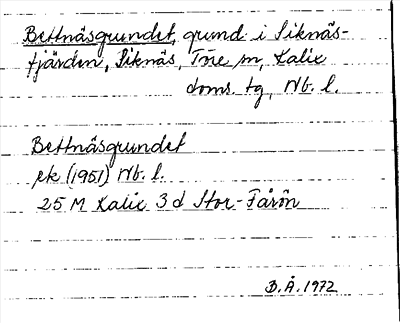 Bettnäsgrundet, grund i Siknäs-
fjärden, Siknäs, Töre sn, Kalix
doms. tg, Nb. l.
Bettnäsgrundet
ek (1951) Nb. l.
25 M Kalix 3 d Stor-Fårön
B.Å. 1972